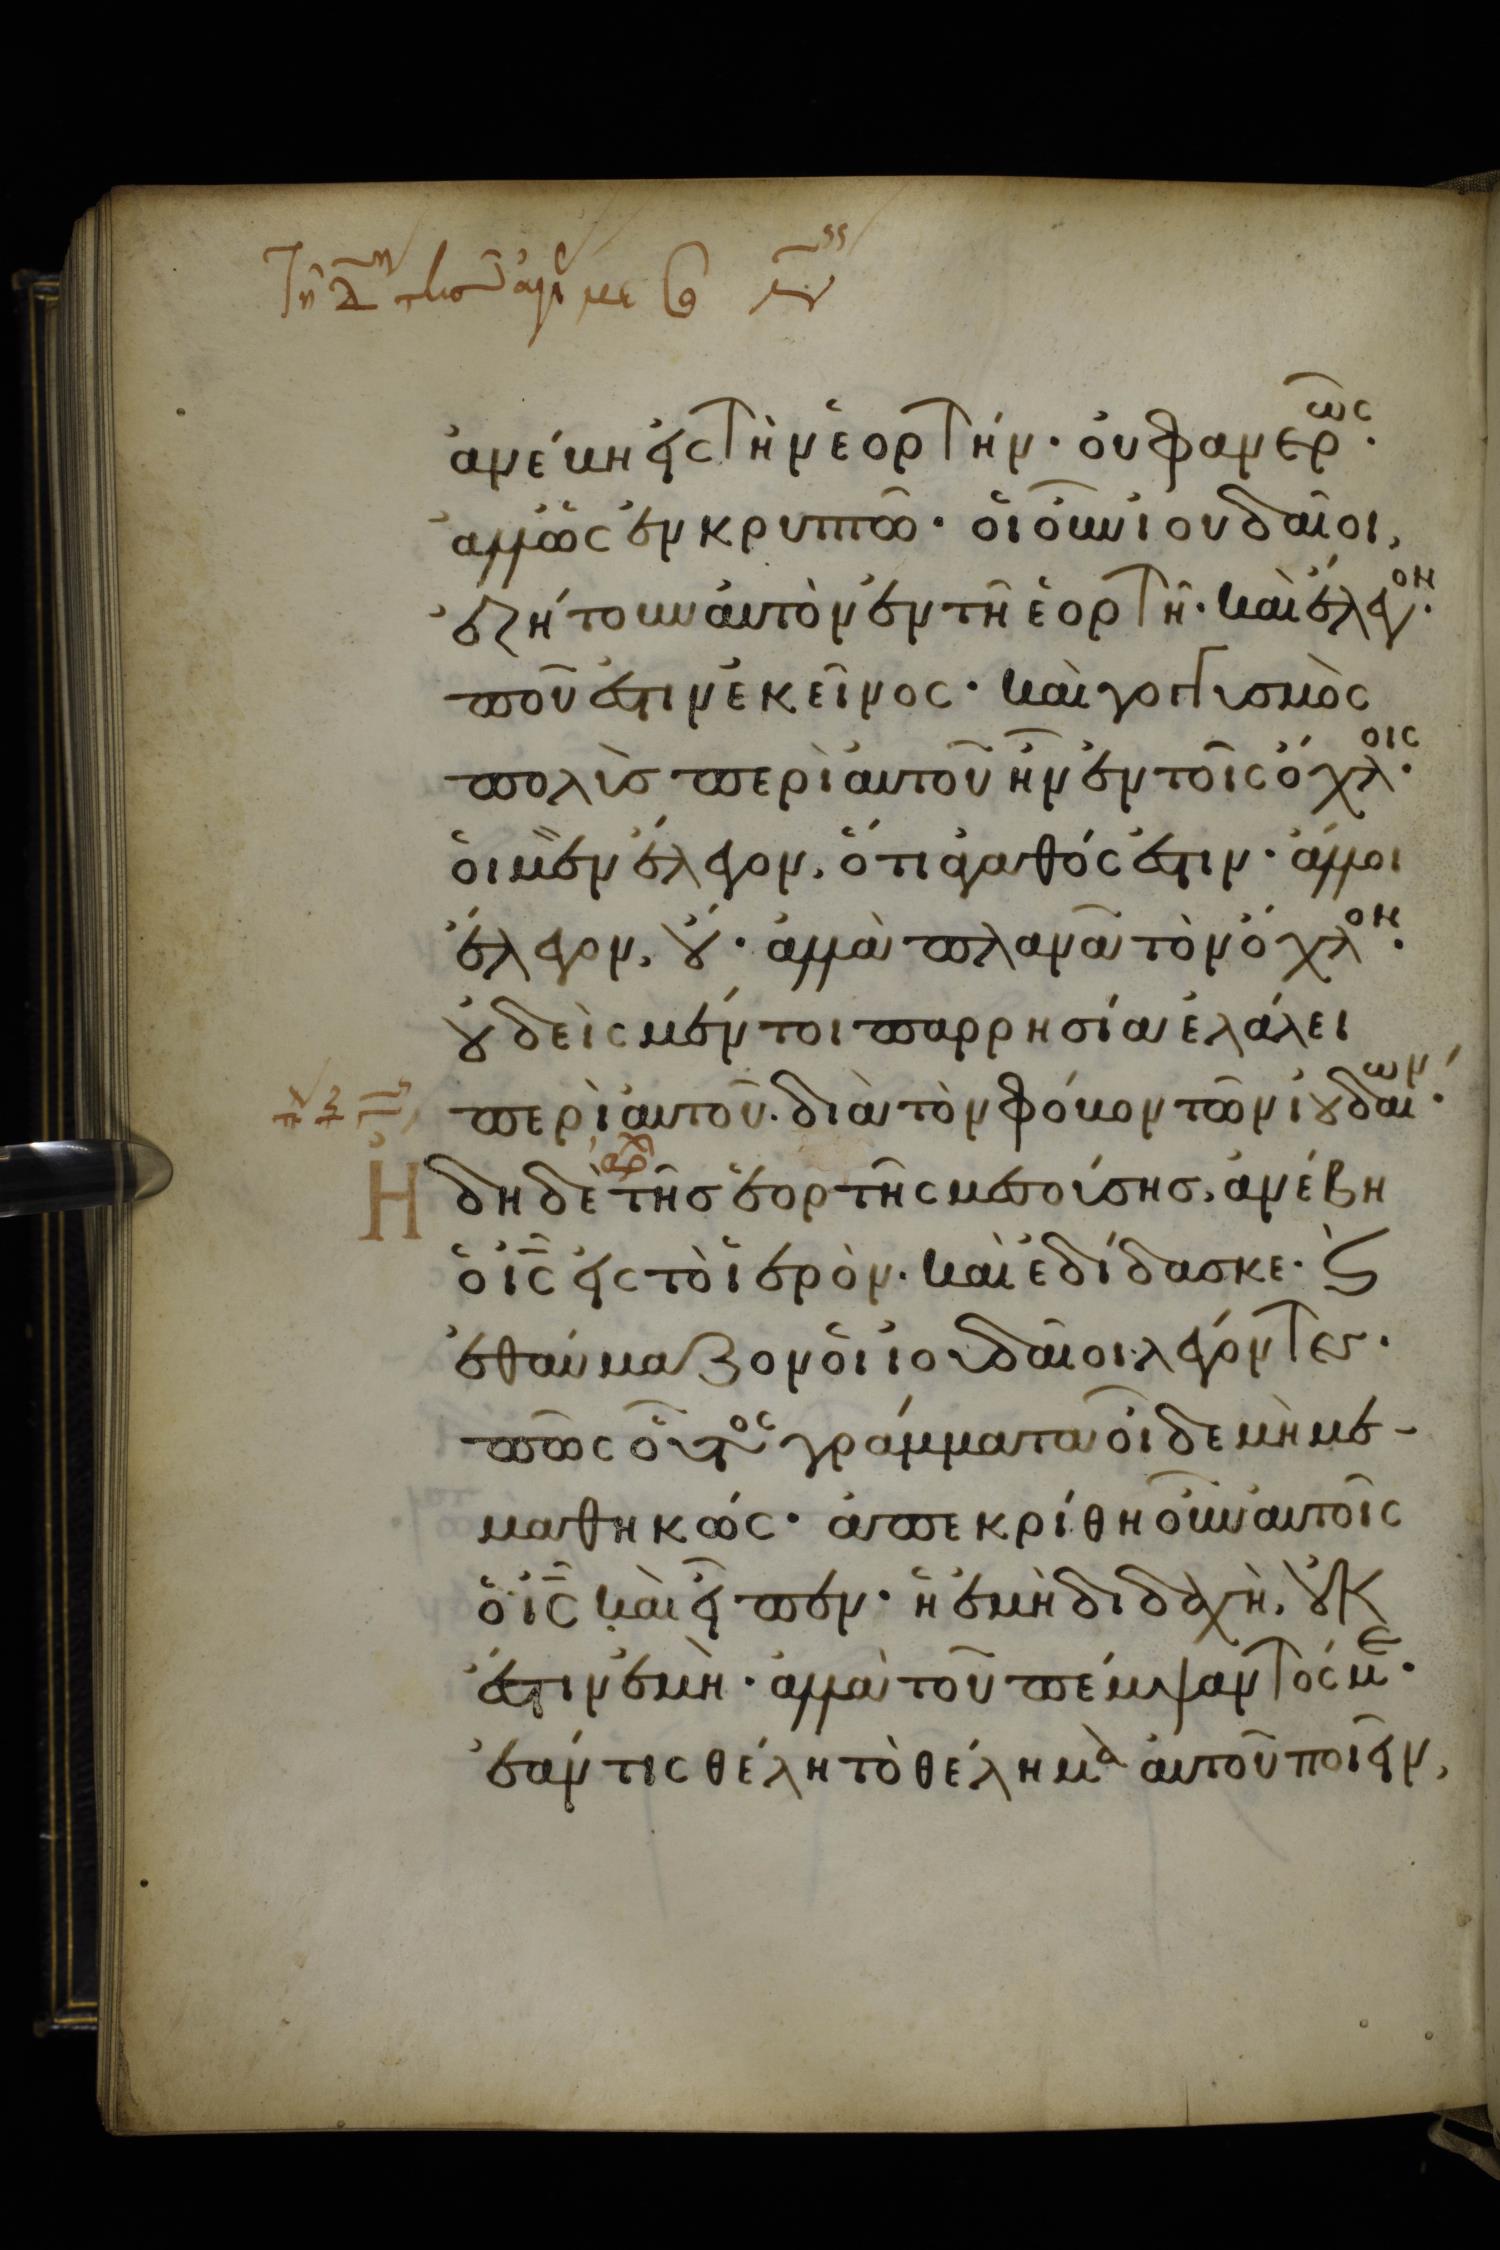 ἀνέβη εἰς τὴν ἑορτήν· οὐ φανερῶς·
ἀλλ ὡς ἐν κρυπτῶ· οἱ οὖν ἰουδαῖοι,
ἐζήτουν αὐτὸν ἐν τῆ ἑορτῆ· καὶ ἔλεγον·
ποῦ ἐστιν ἐκεῖνος· καὶ γογγυσμὸς
πολὺς περὶ αὐτοῦ ἦν ἐν τοῖς ὄχλοις·
οἱ μὲν ἔλεγον, ὅτι ἀγαθός ἐστιν· ἄλλοι
ἔλεγον, οὔ· ἀλλὰ πλανᾶ τὸν ὄχλον·
οὐδεὶς μέντοι παρρησία ἐλάλει
περὶ αὐτοῦ· διὰ τὸν φόβον τῶν ἰουδαίων·
Ἤδη δὲ τῆς ἑορτῆς μεσούσης, ἀνέβη
ὁ ις εἰς τὸ ἱερὸν· καὶ ἐδίδασκε· καὶ
ἐθαύμαζον οἱ ἰουδαῖοι λέγοντες·
πῶς οὗτος γράμματα οἶδε μὴ με-
μαθηκώς· ἀπεκρίθη οὖν αὐτοῖς
ὁ ις καὶ εἶπεν· ἡ ἐμὴ διδαχὴ, οὐκ
ἔστιν ἐμὴ· ἀλλὰ τοῦ πέμψαντός με·
ἐάν τις θέλη τὸ θέλημα αὐτοῦ ποιεῖν,